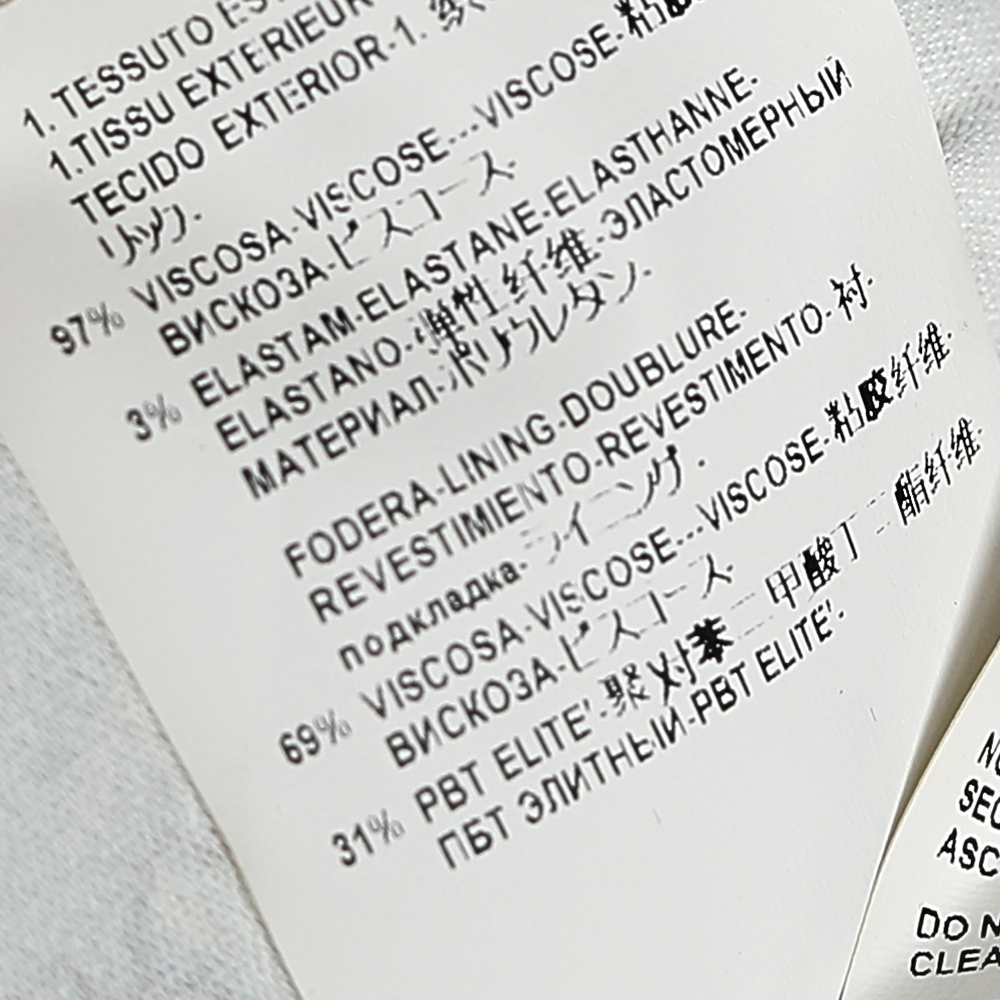 1. TESSUTO
1.TISSU EXTERIEUR
TECIDO EXTERIOR-1.
リック.
97% VISCOSA-VISCOSE---VISCOSE-粘
ВИСКОЗА-ビスコース.
3% ELASTAM-ELASTANE-ELASTHANNE-
ELASTANO-弹性纤维-ЭЛАСТОМЕРНЫЙ
МАТЕРИАЛ-ポリウレタン.
FODERA-LINING-DOUBLURE-
REVESTIMIENTO-REVESTIMENTO-衬.
подкладка-ライニング.
69% VISCOSA-VISCOSE---VISCOSE-粘胶纤维.
ВИСКОЗА-ビスコース.
31% PBT ELITE'-聚对苯二甲酸丁二酯纤维.
ПБТ ЭЛИТНЫЙ-PBT ELITE'-
SEC
ASC
DO N
CLEA